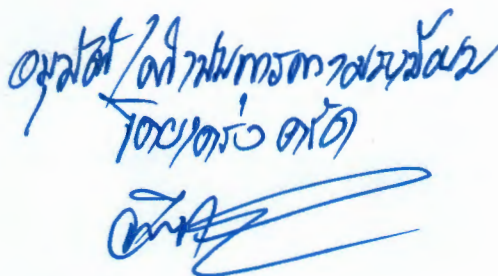 อนุมัติ / ดำเนินการตามระเบียบ
โดยเคร่งครัด